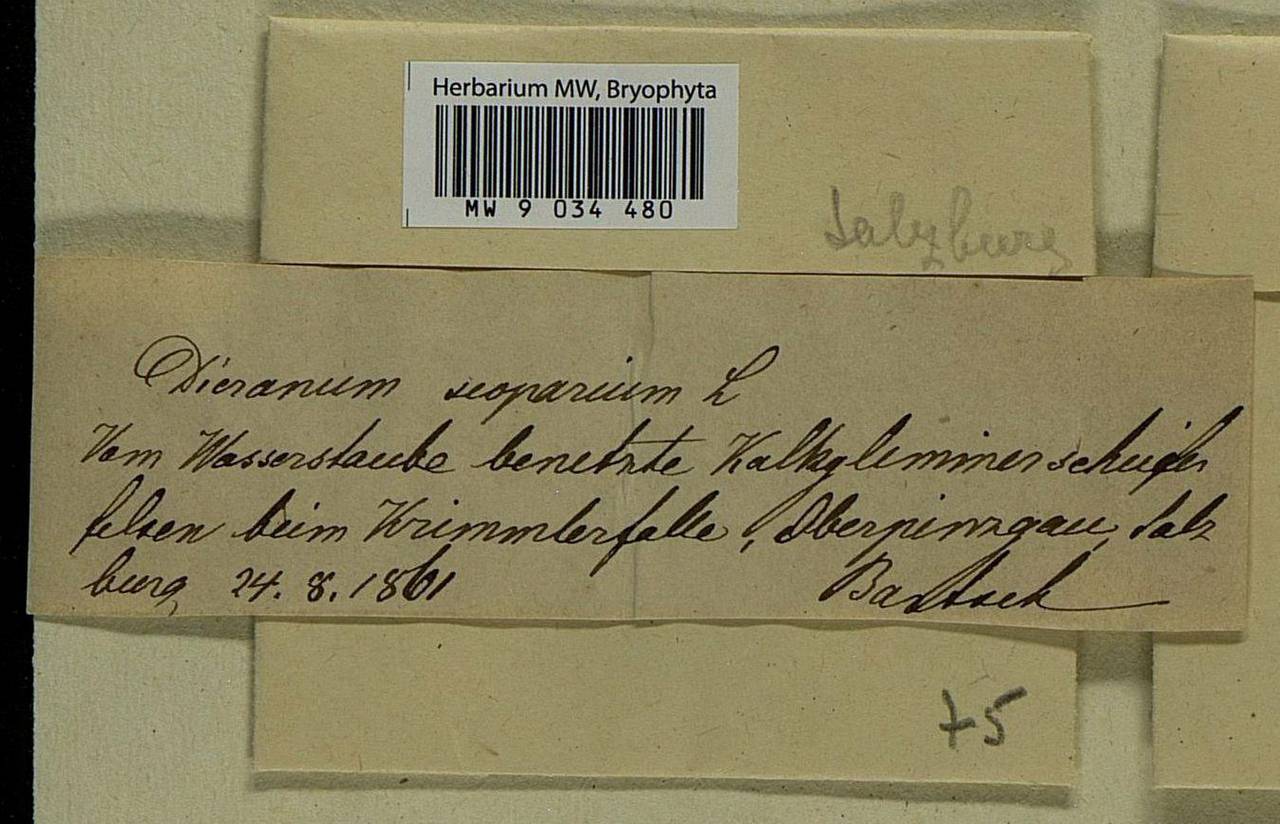 Herbarium MW, Bryophyta
MW 9 034 480
Salzburg
Dicranum scoparium L
Vom Wasserstaube benetzte Kalkglimmerschiefer
felsen beim Krimmlerfalle, Oberpinzgau, Salz
burg 24. 8. 1861 Bartsch
+5